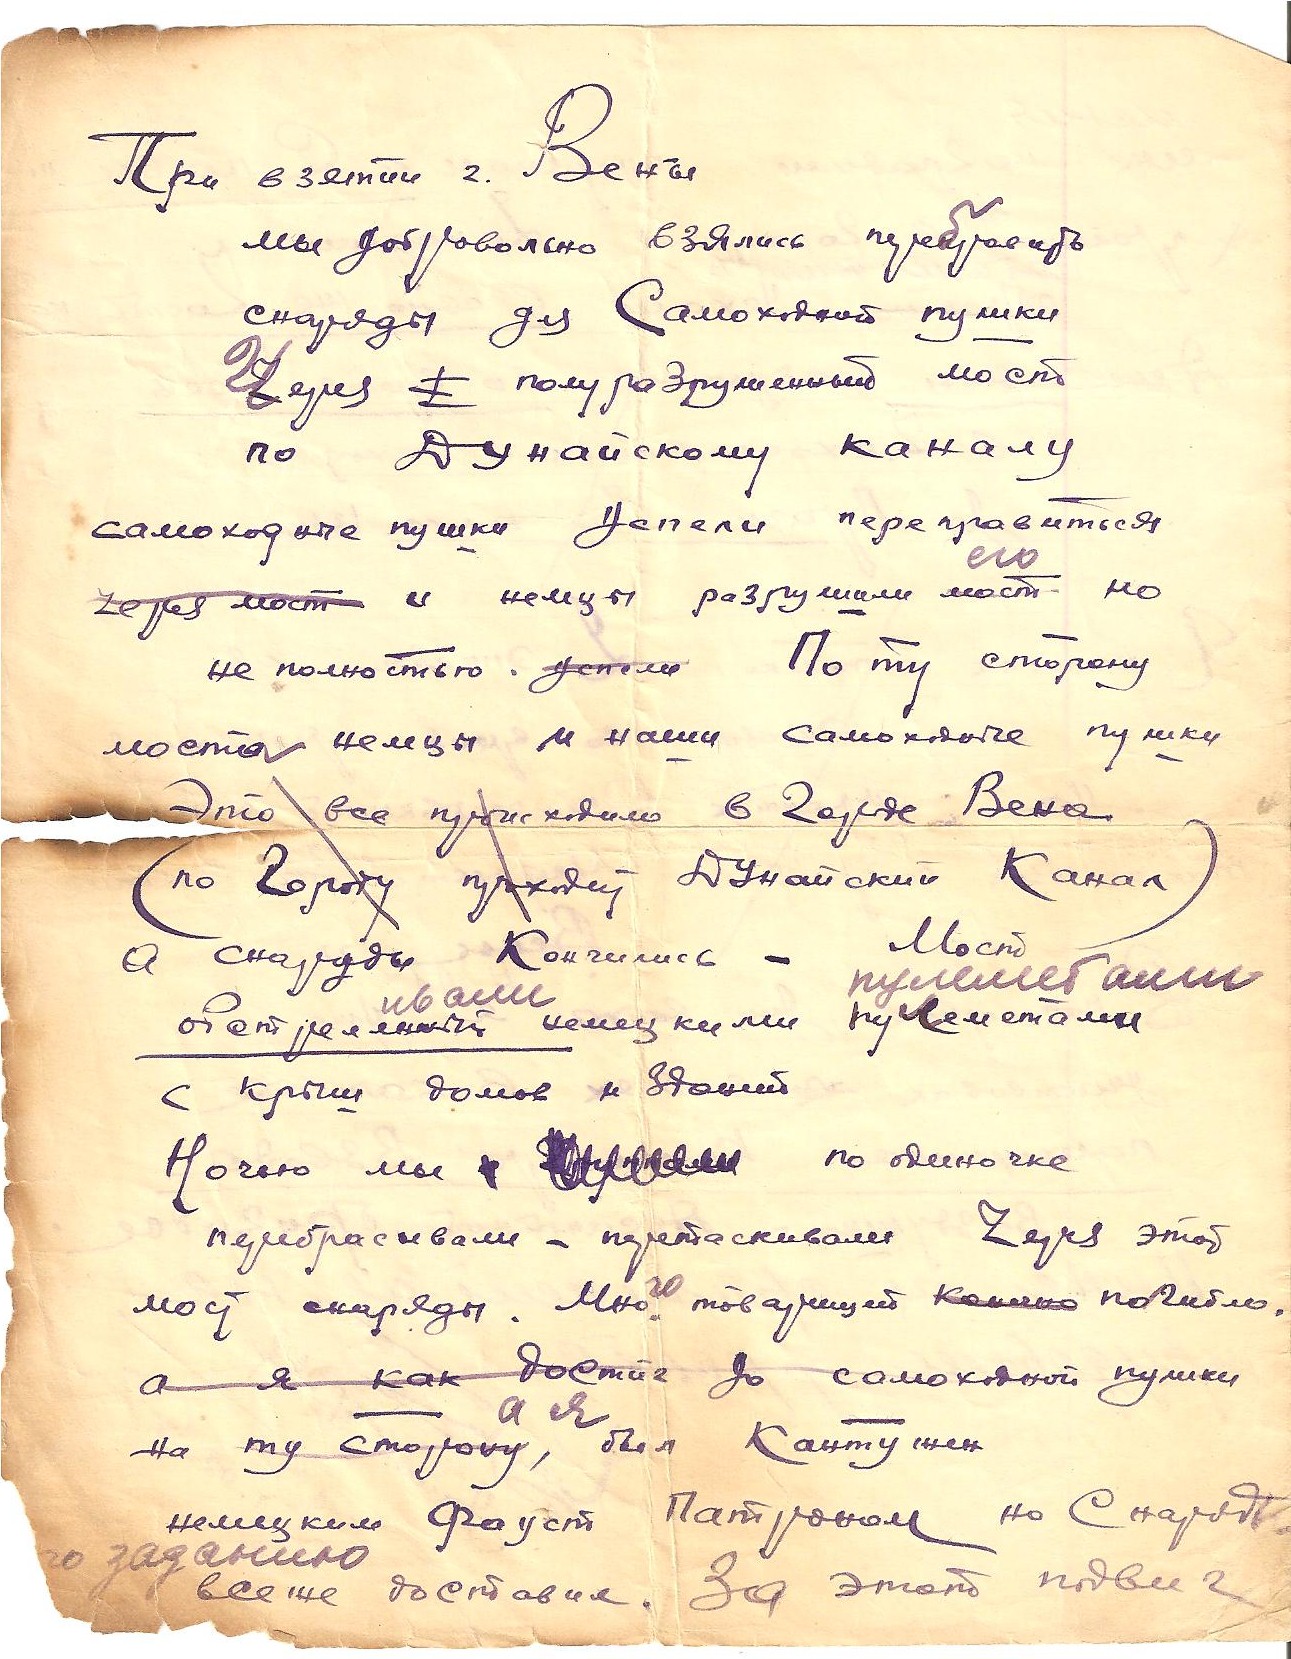 При взятии г. Вены
мы добровольно взялись перебросить
снаряды для Самоходной пушки
Через I полуразрушенный мост
по Дунайскому каналу
самоходные пушки Успели переправиться
через мост и немцы разрушили мост его но
не полностью. успели По ту сторону
моста немцы и наши самоходные пушки
Это все происходило в Городе Вена
(по Городу проходит Дунайский Канал)
а снаряды Кончились – Мост
ивали пулеметами
обстрелянный немецкими пулеметами
с крыш домов и Зданий
Ночью мы по одиночке
перебрасывали – перетаскивали Через этот
мост снаряды. Много товарищей конечно погибло.
а я как достиг до самоходной пушки
а я
на ту сторону, был Кантужен
немецким Фауст Патроном но Снаряды
по заданию
все же доставил. За этот подвиг